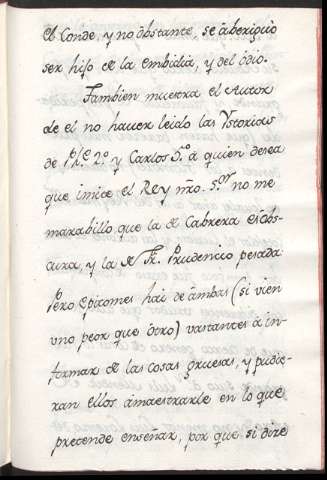 el Conde, y no obstante, se aberiguò
ser hijo de la embidia, y del òdio.
Tambien muestra el Autor
de el no hauer leido las Ystorias
de Ph.e 2.o y Carlos 5.o à quien desea
que imite el Rey nro. S.or no me
marabillo que la de Cabrera es obs-
cura, y la de Fr. Prudencio pesada:
Pero Epitomes hai de àmbas (si vien
vno peor que òtro) vastantes à in-
formar de las cosas gruesas, y pudie-
ran ellos àmaestrarle en lo que
pretende enseñar, por que si dize